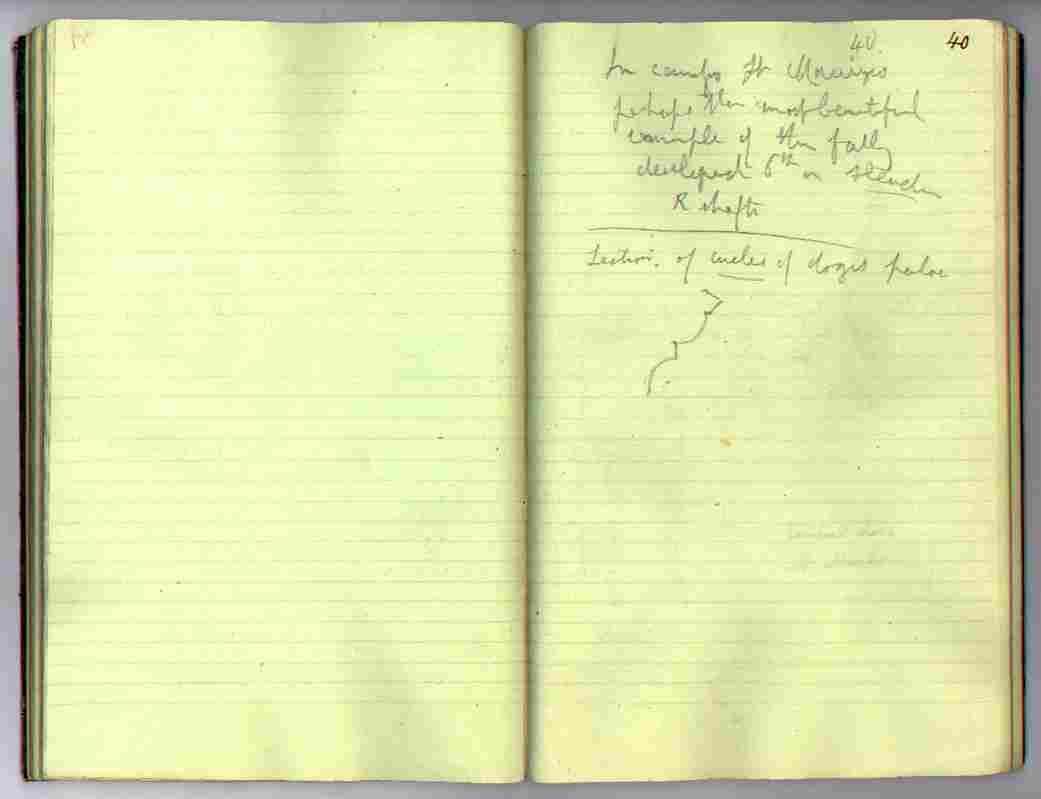 40. 40
In campo St Maurizio
perhaps the most beautiful
example of the fully
developed 6th on slender
R shafts
Section. of circles of doges palac